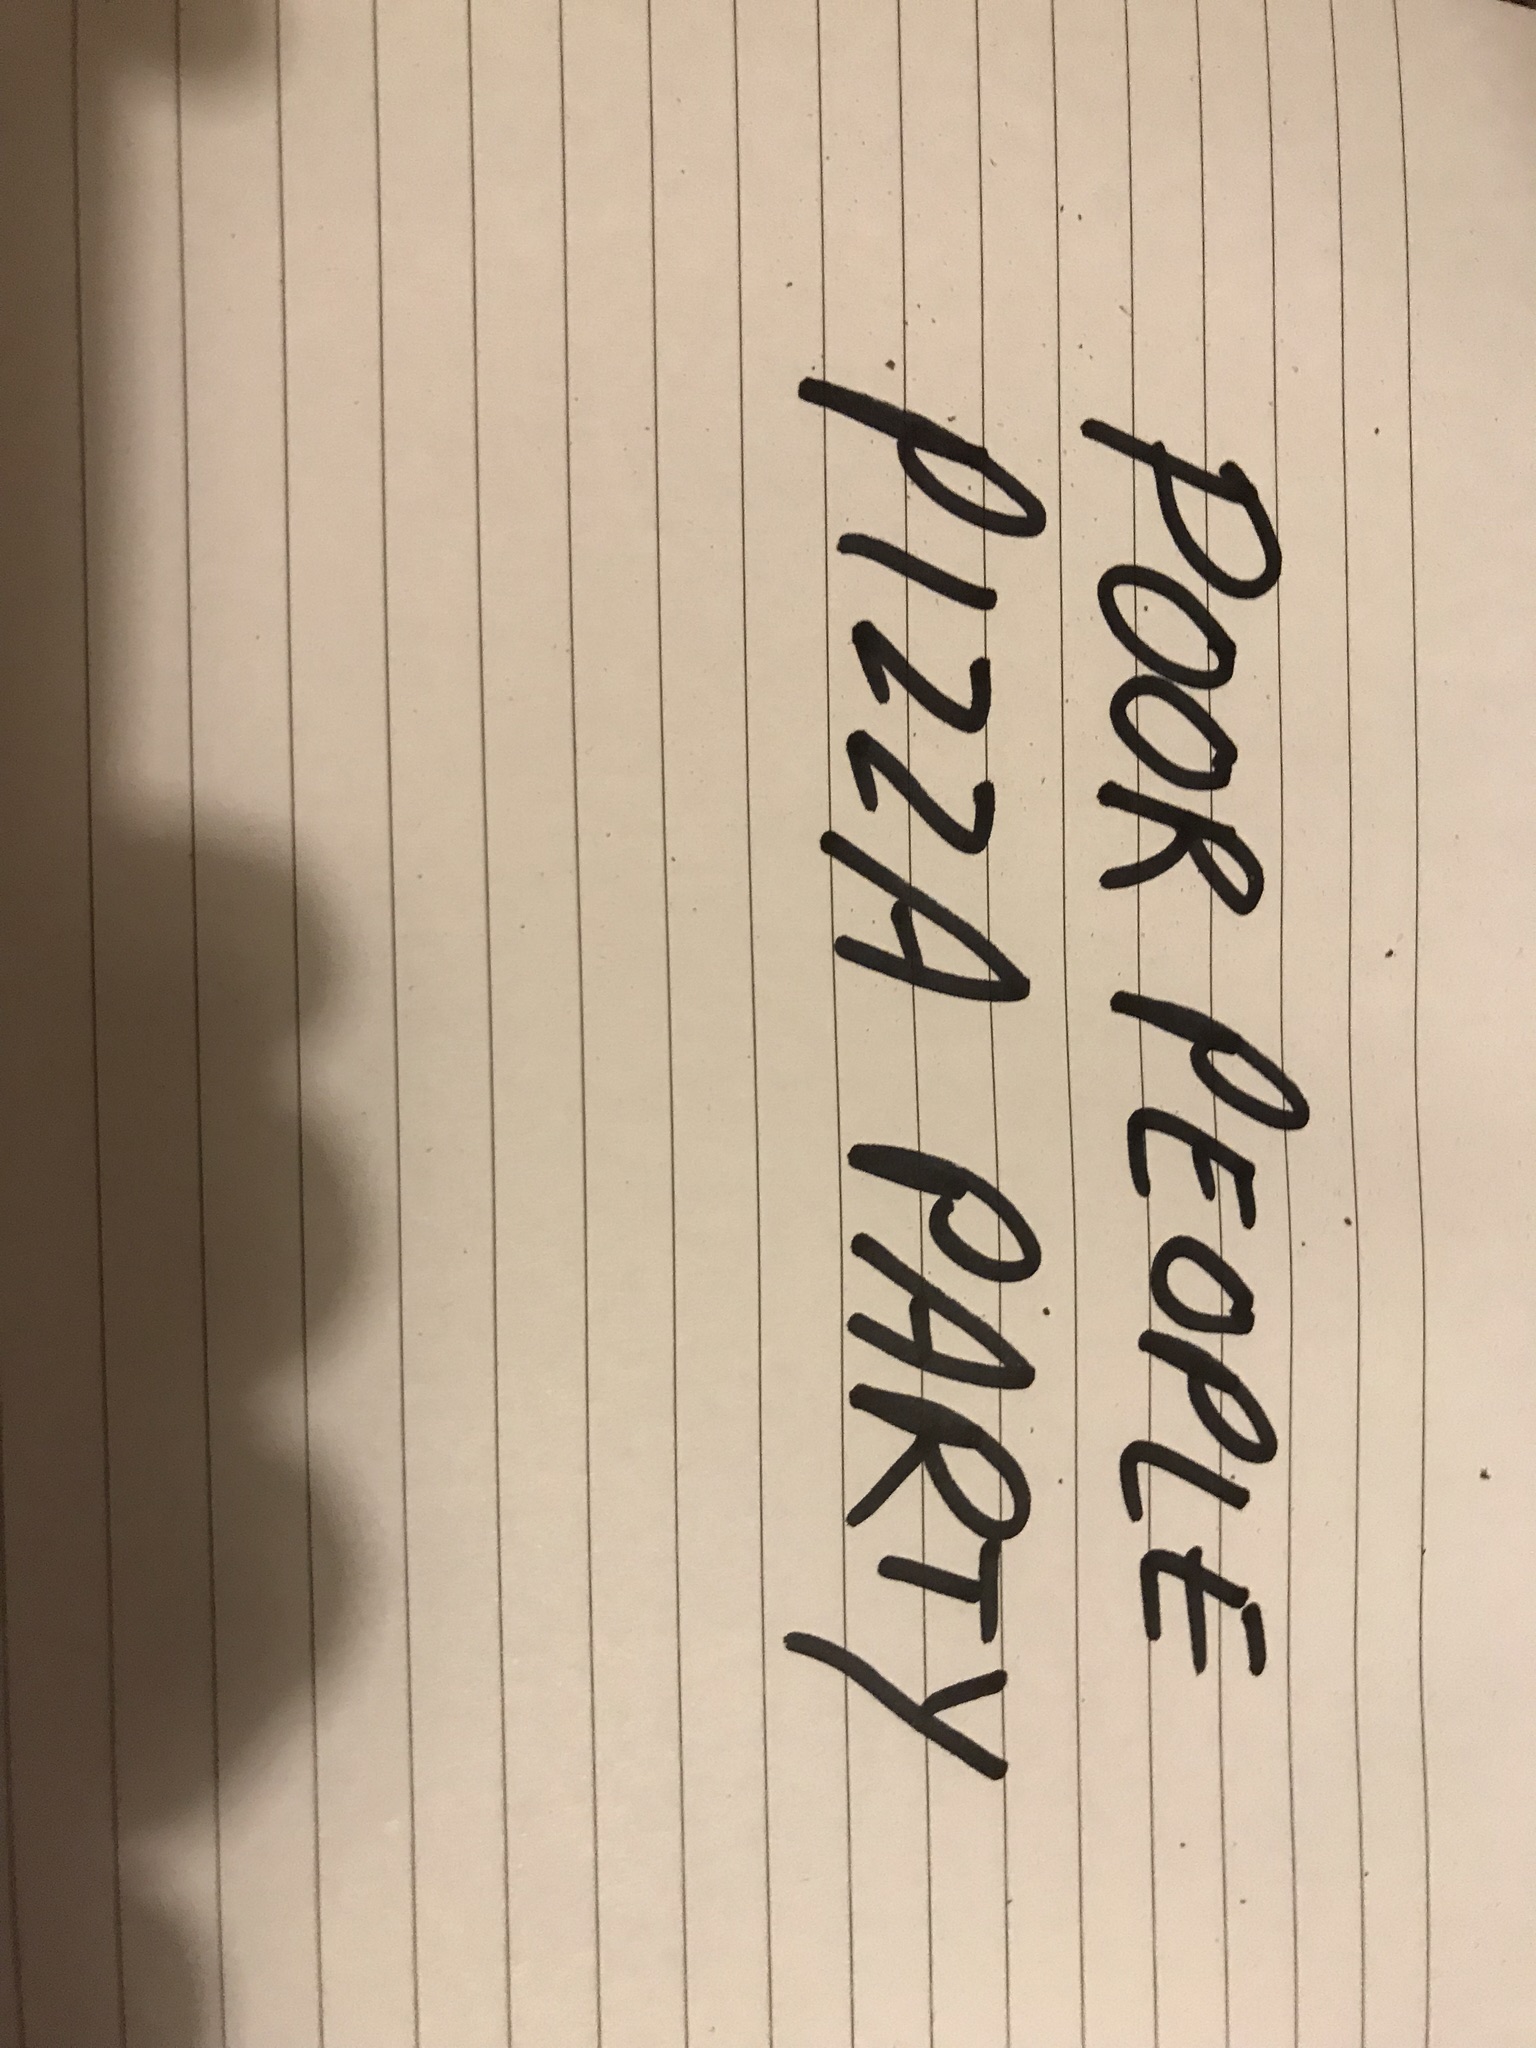 POOR PEOPLE
PIZZA PARTY